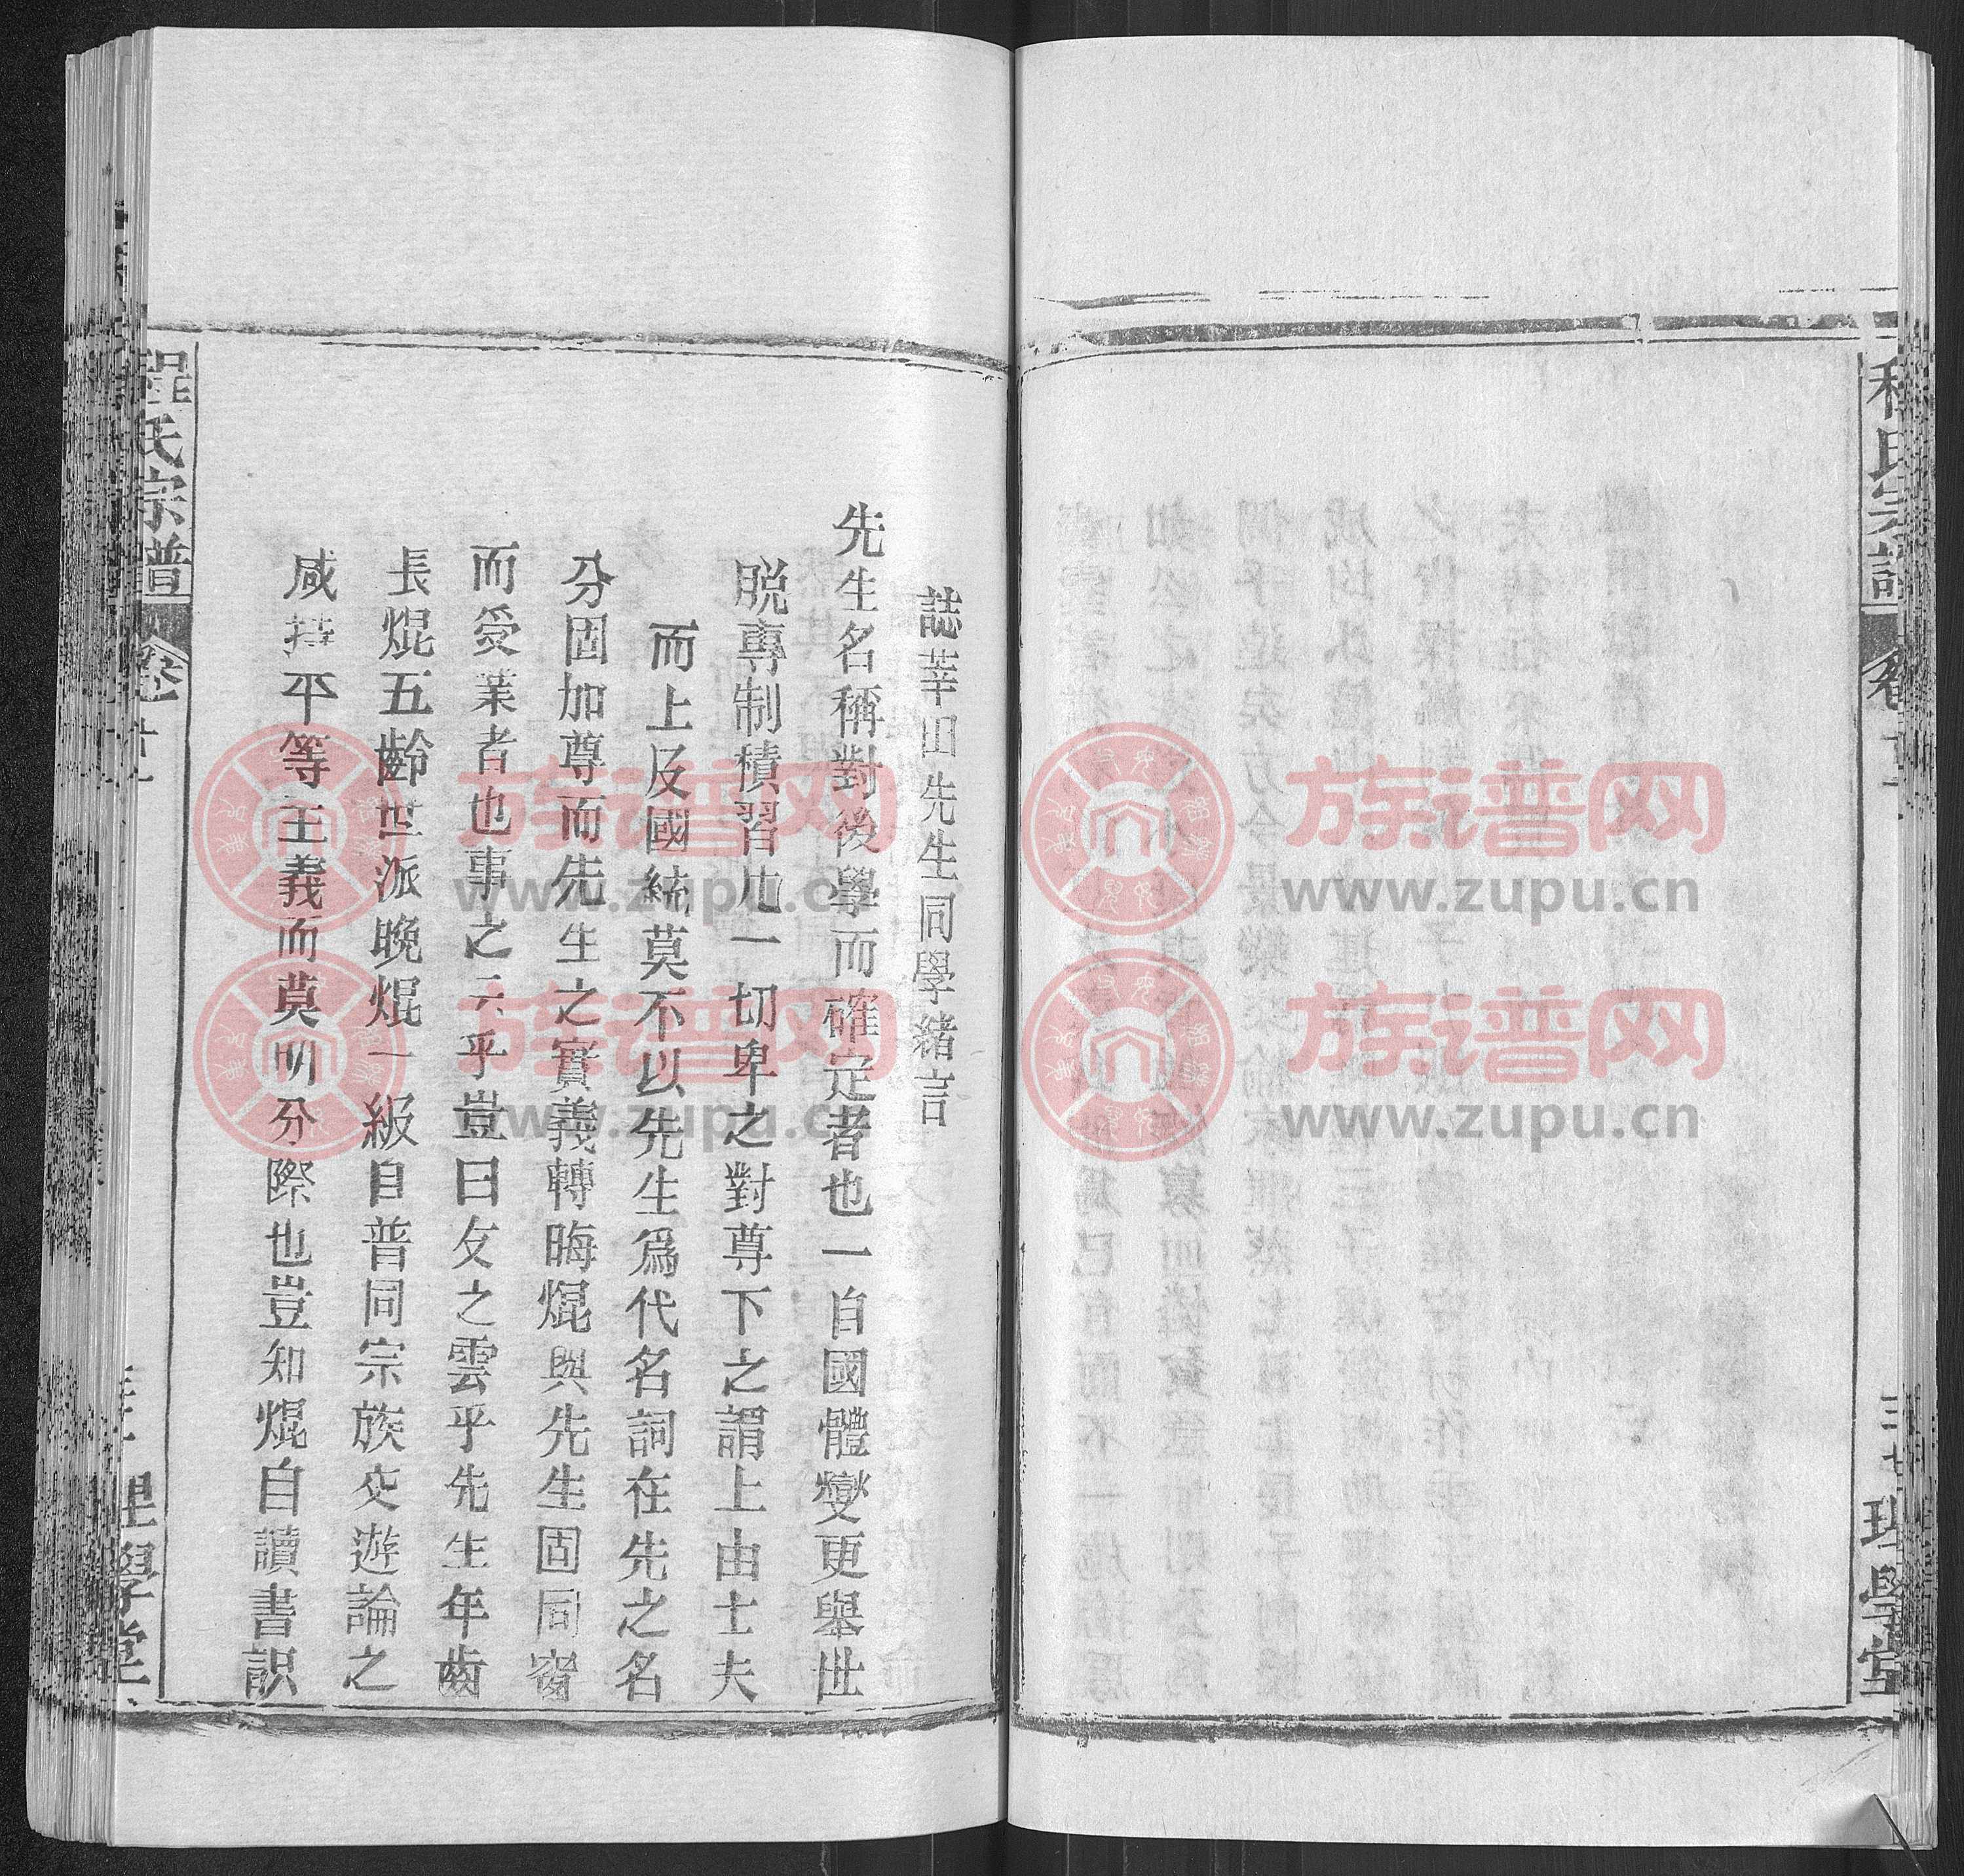 程氏宗譜
理學堂
誌莘田先生同學緒言
先生名稱對後學而確定者也一自國體變更舉世
脫專制積習凡一切卑之對尊下之謂上由士夫
而上及國統莫不以先生爲代名詞在先之名
分固加尊而先生之實義轉晦焜與先生固同窗
而受業者也事之云乎豈曰友之雲乎先生年齒
長焜五齡世派晚焜一級自普同宗族交遊論之
咸持平等主義而莫明分際也豈知焜自讀書識
程氏宗譜
理學堂
族谱网
www.zupu.cn
族谱网
www.zupu.cn
族谱网
www.zupu.cn
族谱网
www.zupu.cn